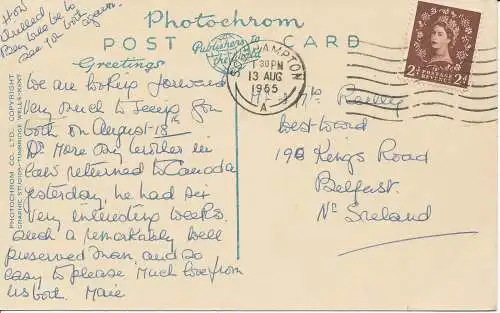 How
thrilled
Ben will be to
see you both
again.
Photochrom
POST CARD
Publishers to
the World
Greetings
SOUTHAMPTON
7 30 PM
13 AUG
1965
A
POSTAGE
REVENUE
2½D 2½D
We are looking forward
very much to seeing you
both on August 18th
Dr More my brother in
law returned to Canada
yesterday, he had six
very interesting weeks.
Such a remarkably well
preserved man, and so
easy to please Much love from
us both. Marie
Mr & Mrs
Westward
196 Kings Road
Belfast.
Nn Ireland
PHOTOCHROM CO. LTD., COPYRIGHT
GRAPHIC STUDIOS-TUNBRIDGE WELLS-KENT